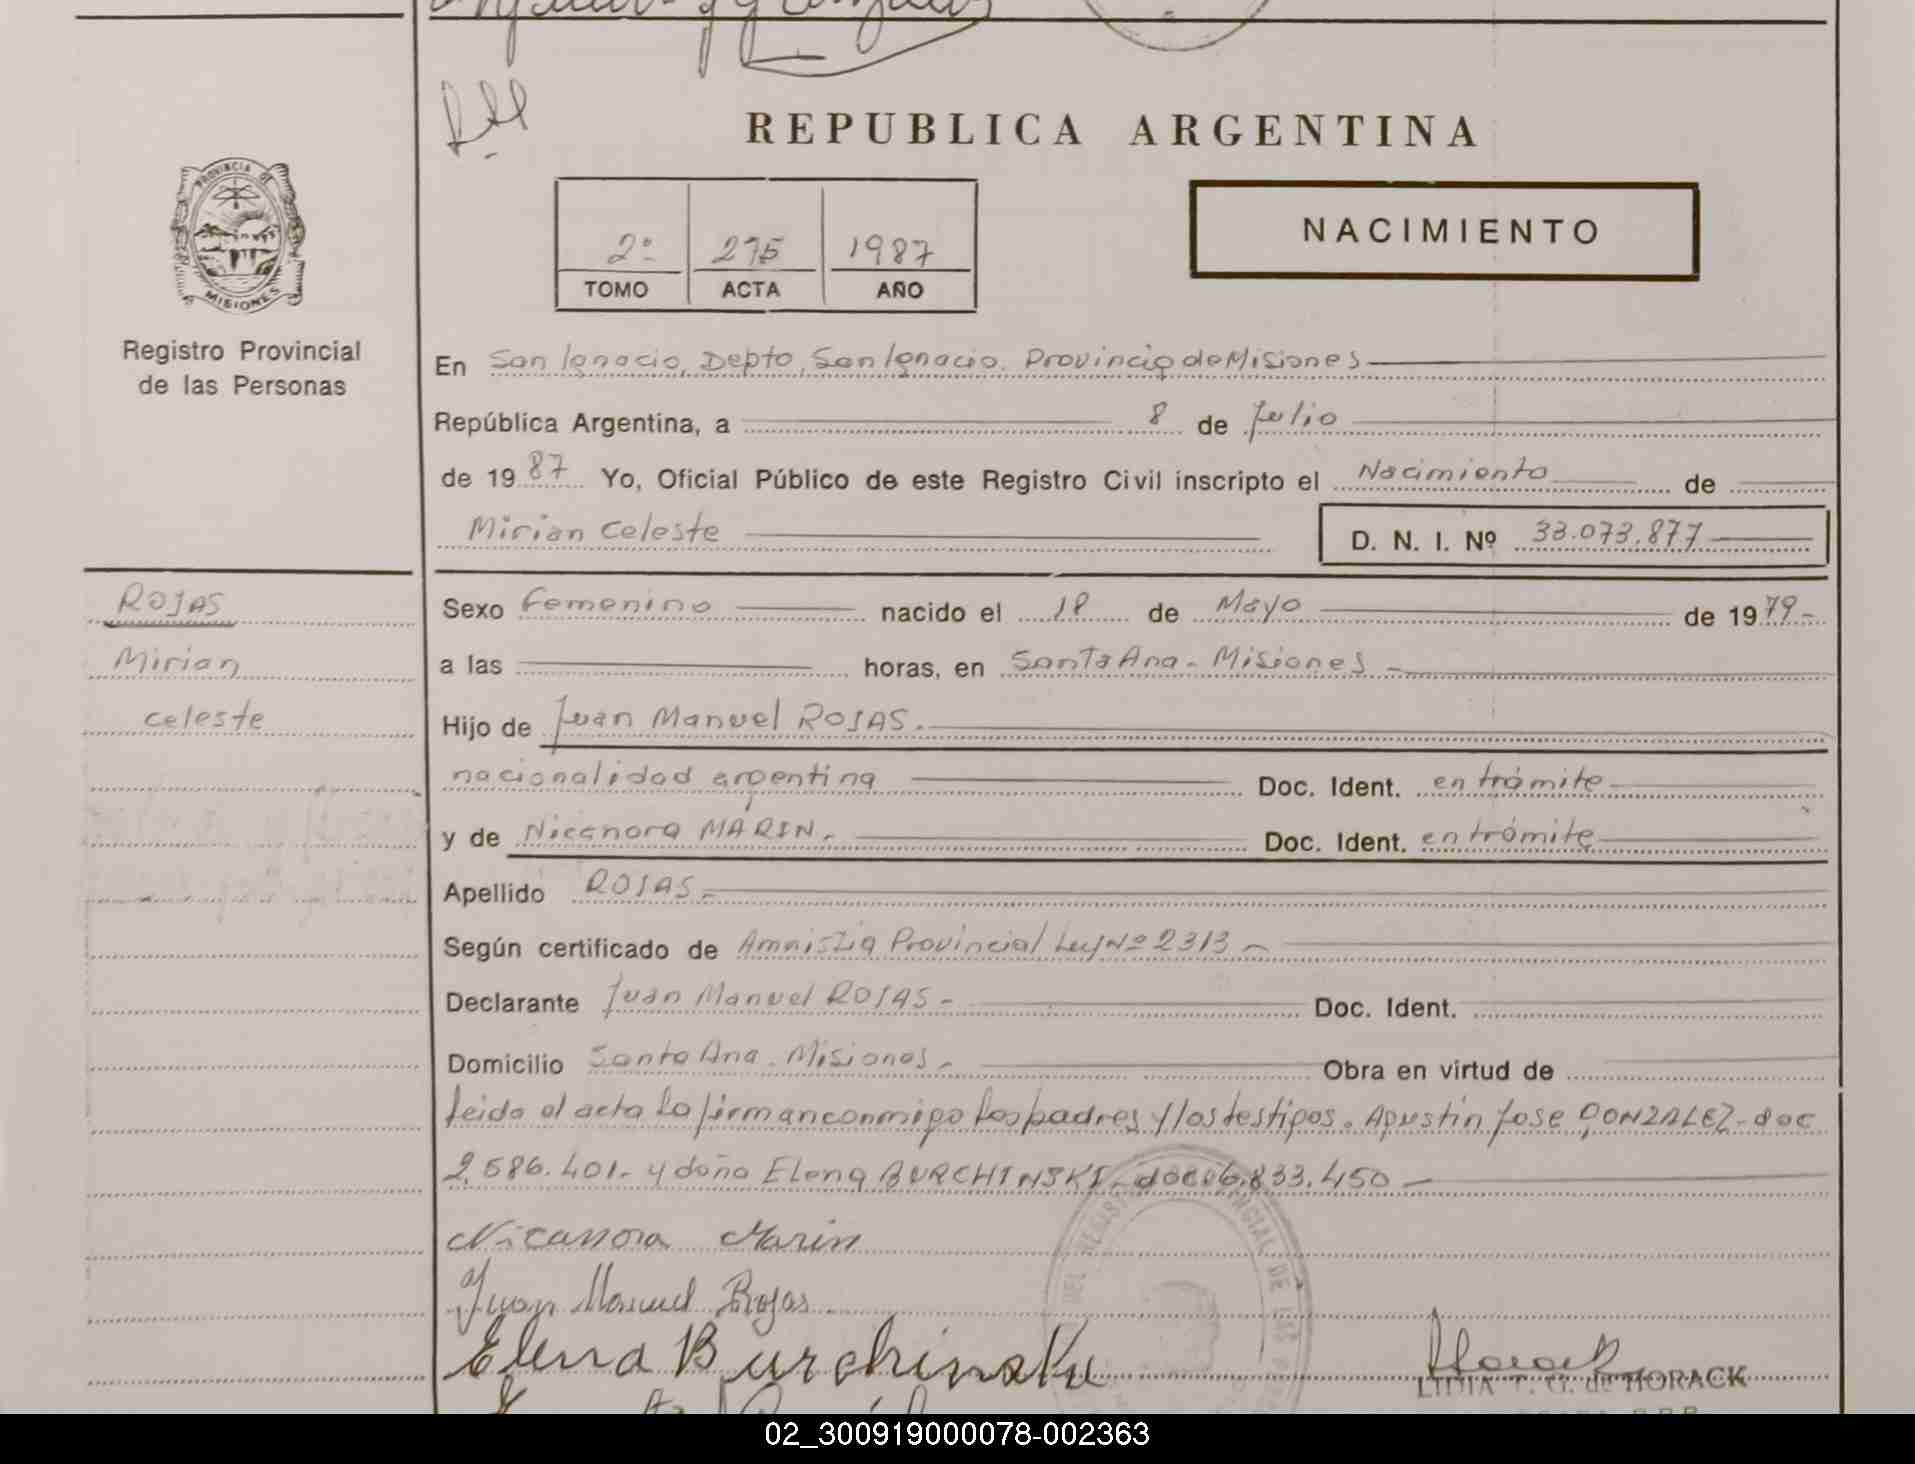 REPUBLICA ARGENTINA
PROVINCIA DE
MISIONES
Registro Provincial
de las Personas
2º 275 1987
TOMO ACTA AÑO
NACIMIENTO
En San Ignacio, Depto, San Ignacio. Provincia de Misiones
República Argentina, a 8 de Julio
de 1987 Yo, Oficial Público de este Registro Civil inscripto el Nacimiento de
Mirian Celeste D. N. I. Nº 33.073.877
ROJAS
Mirian
Celeste
Sexo Femenino nacido el 18 de Mayo de 1979-
a las horas, en Santa Ana - Misiones -
Hijo de Juan Manuel ROJAS.
nacionalidad argentina Doc. Ident. en trámite
y de Nicanora MARIN. Doc. Ident. en trámite
Apellido ROJAS-
Según certificado de Amnistia Provincial Ley Nº 2313-
Declarante Juan Manuel ROJAS- Doc. Ident.
Domicilio Santa Ana. Misiones- Obra en virtud de
leida el acta la firman conmigo los padres y los testigos. Agustin Jose GONZALEZ-doc
2.586.401- y doña Elena BURCHINSKI- doc. 6.833.450-
Nicanora Marin
Juan Manuel Rojas
Elena Burchinski
Horack
LIDIA T. G. de HORACK
02_300919000078-002363